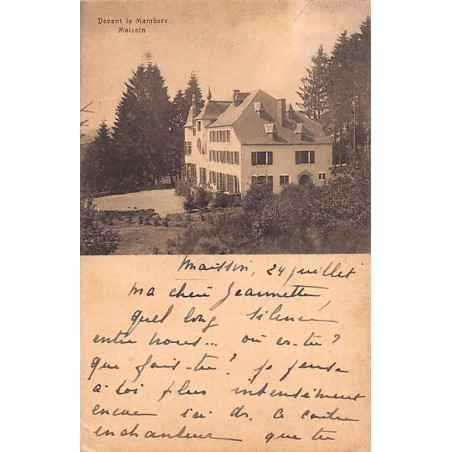 Devant la Mambore
Maissin
Maissin, 24 juillet
Ma chère Jeannette,
quel long silence
entre nous... où es-tu?
que fais-tu? je pense
à toi plus intensément
encore ici ds. ce cadre
enchanteur que tu